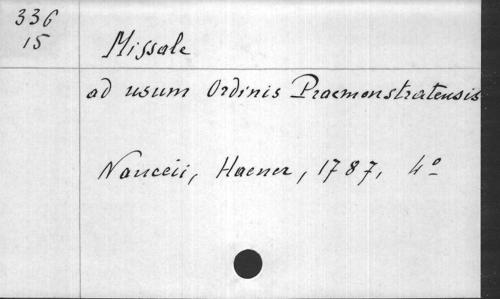 336
15
Missale
ad usum Ordinis Praemonstratensis
Nanceii, Haener, 1787, 4º